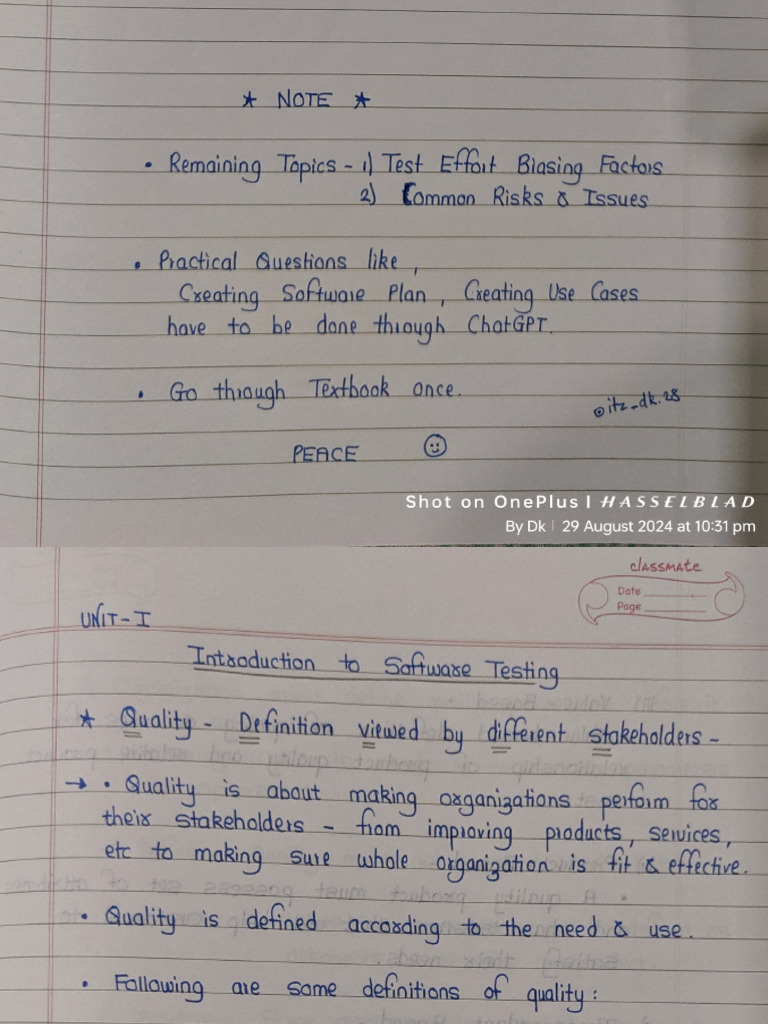 ★ NOTE ★
• Remaining Topics - 1) Test Effort Biasing Factors
2) Common Risks & Issues
• Practical Questions like,
Creating Software Plan, Creating Use Cases
have to be done through ChatGPT.
• Go through Textbook once.
@itz_dk.28
PEACE ☺
Shot on OnePlus | HASSELBLAD
By Dk | 29 August 2024 at 10:31 pm
classmate
Date
Page
UNIT-I
Introduction to Software Testing
★ Quality - Definition viewed by different stakeholders -
→ • Quality is about making organizations perform for
their stakeholders - from improving products, services,
etc to making sure whole organization is fit & effective.
• Quality is defined according to the need & use.
• Following are some definitions of quality: